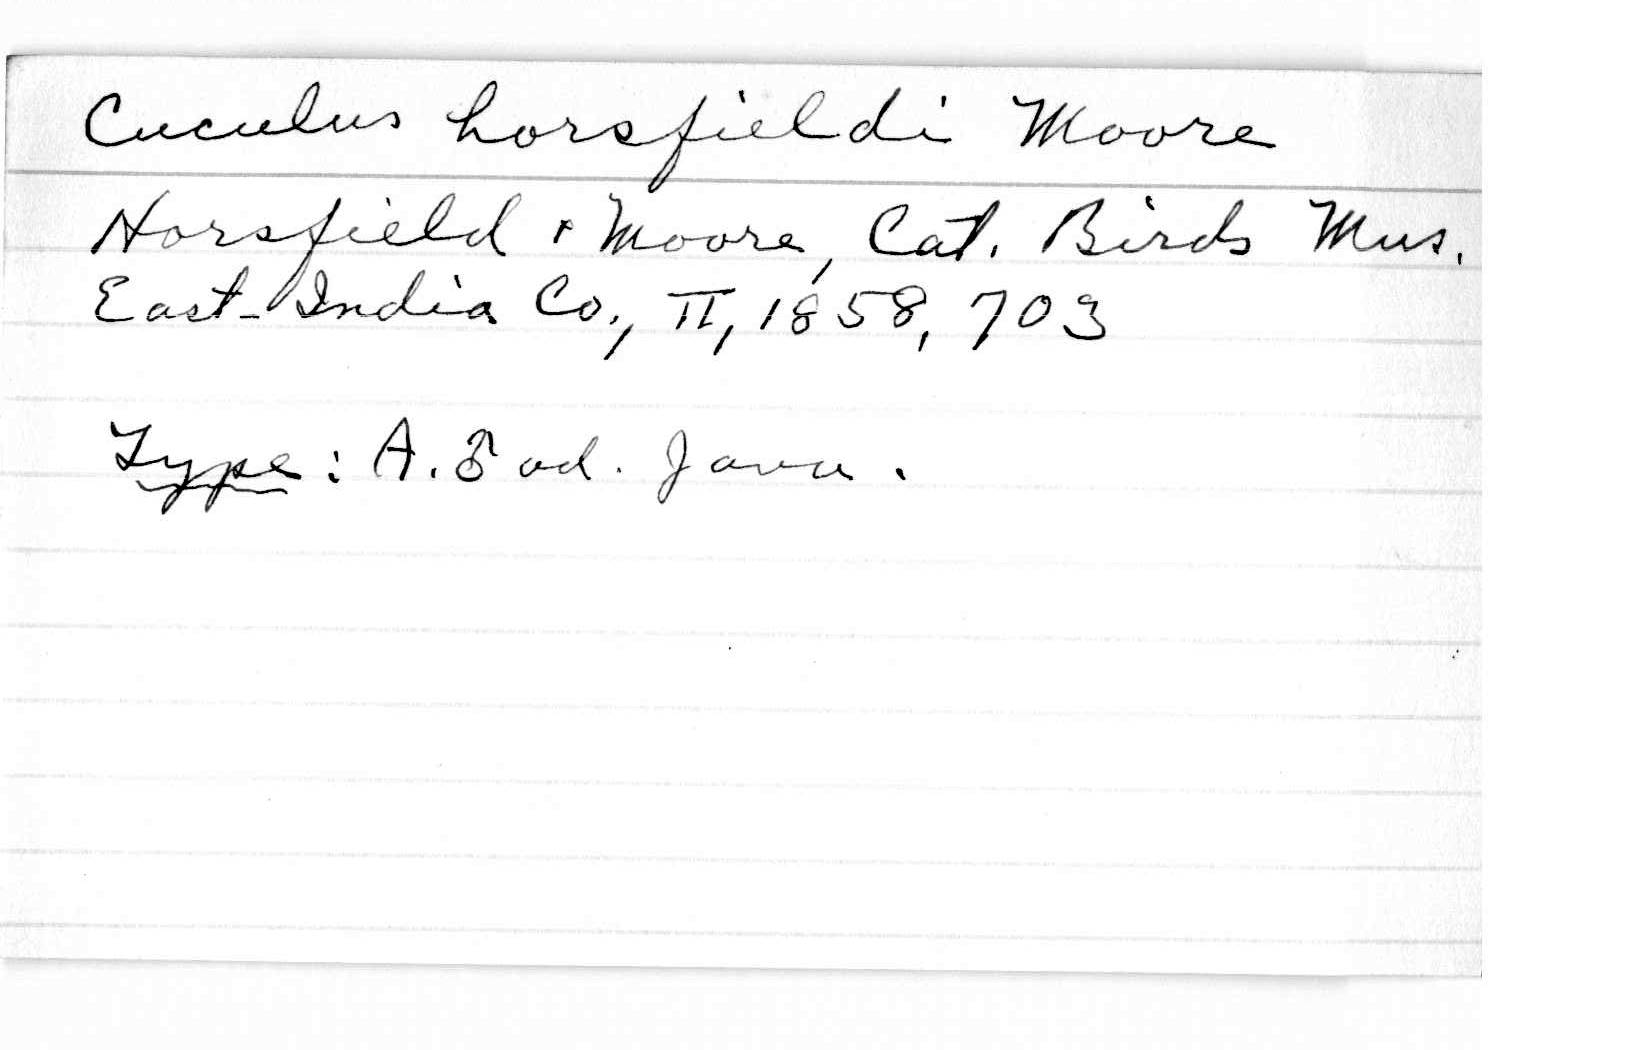 Cuculus horsfieldi Moore
Horsfield & Moore, Cat. Birds Mus.
East-India Co., II, 1858, 703
Type: A. ♂ ad. Java.